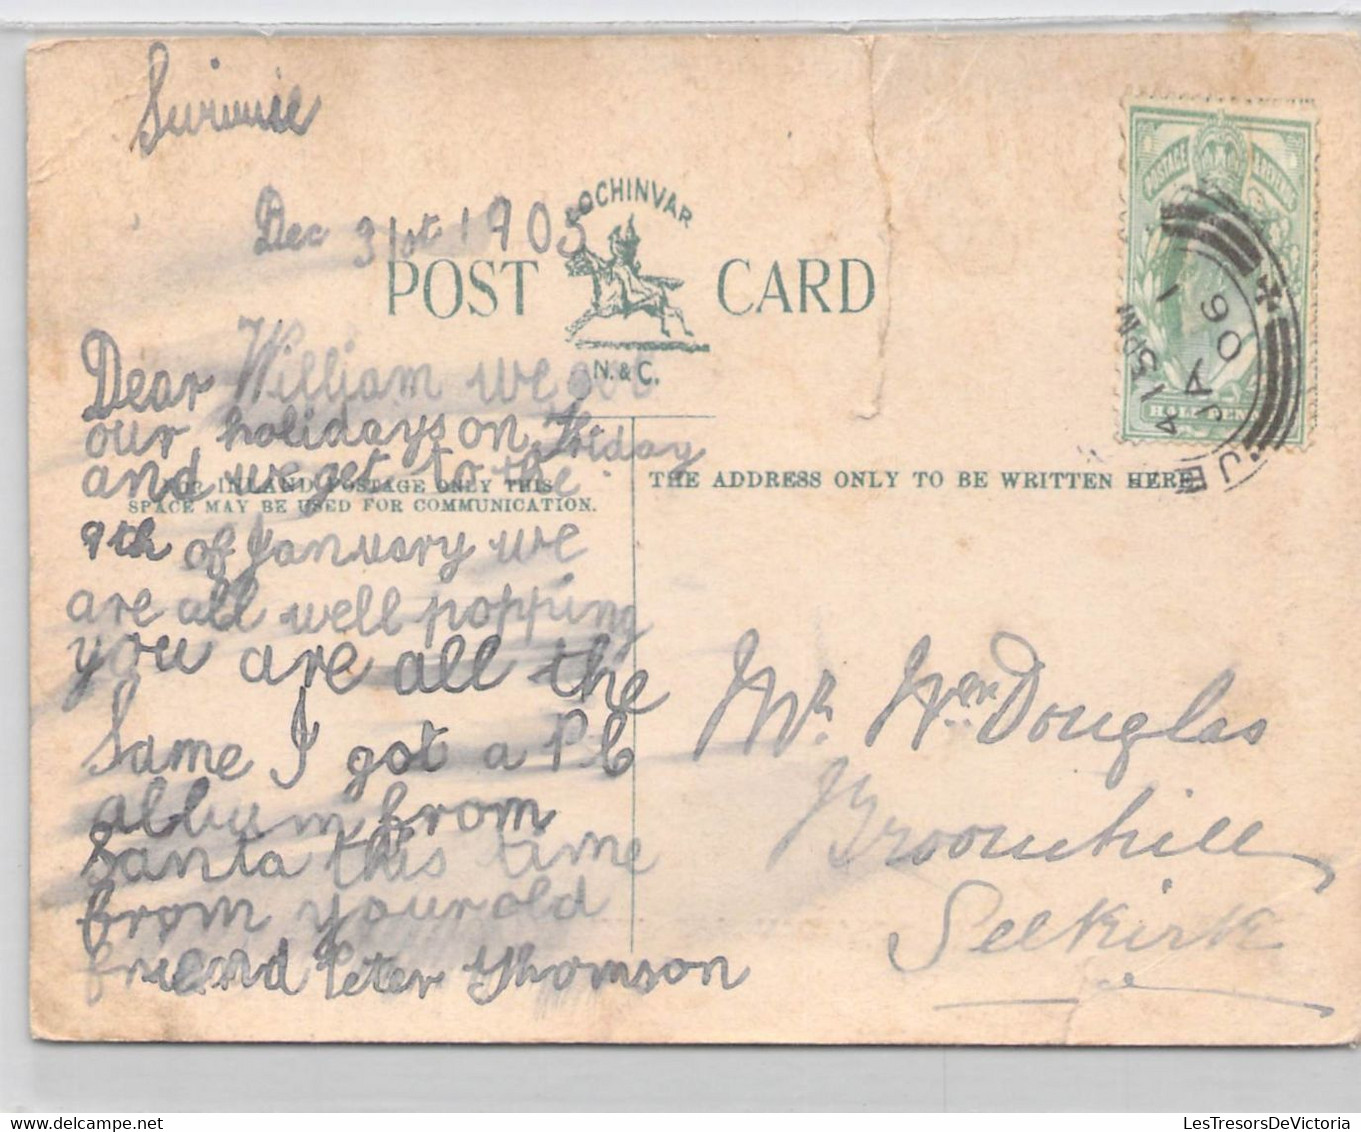 Dec 31st 1905
LOCHINVAR
POST CARD
N. & C.
Dear William we got
our holidays on Friday
and we get to the
FOR INLAND POSTAGE ONLY THIS
SPACE MAY BE USED FOR COMMUNICATION.
THE ADDRESS ONLY TO BE WRITTEN HERE.
9th of January we
are all well popping
you are all the
Same I got a P.C
album from
Santa this time
from your old
friend Peter Thomson
Mr. Wm Douglas
Broomhill
Selkirk
POSTAGE REVENUE
HALFPENNY
4 15 PM
JA 1
06
LesTresorsDeVictoria.com